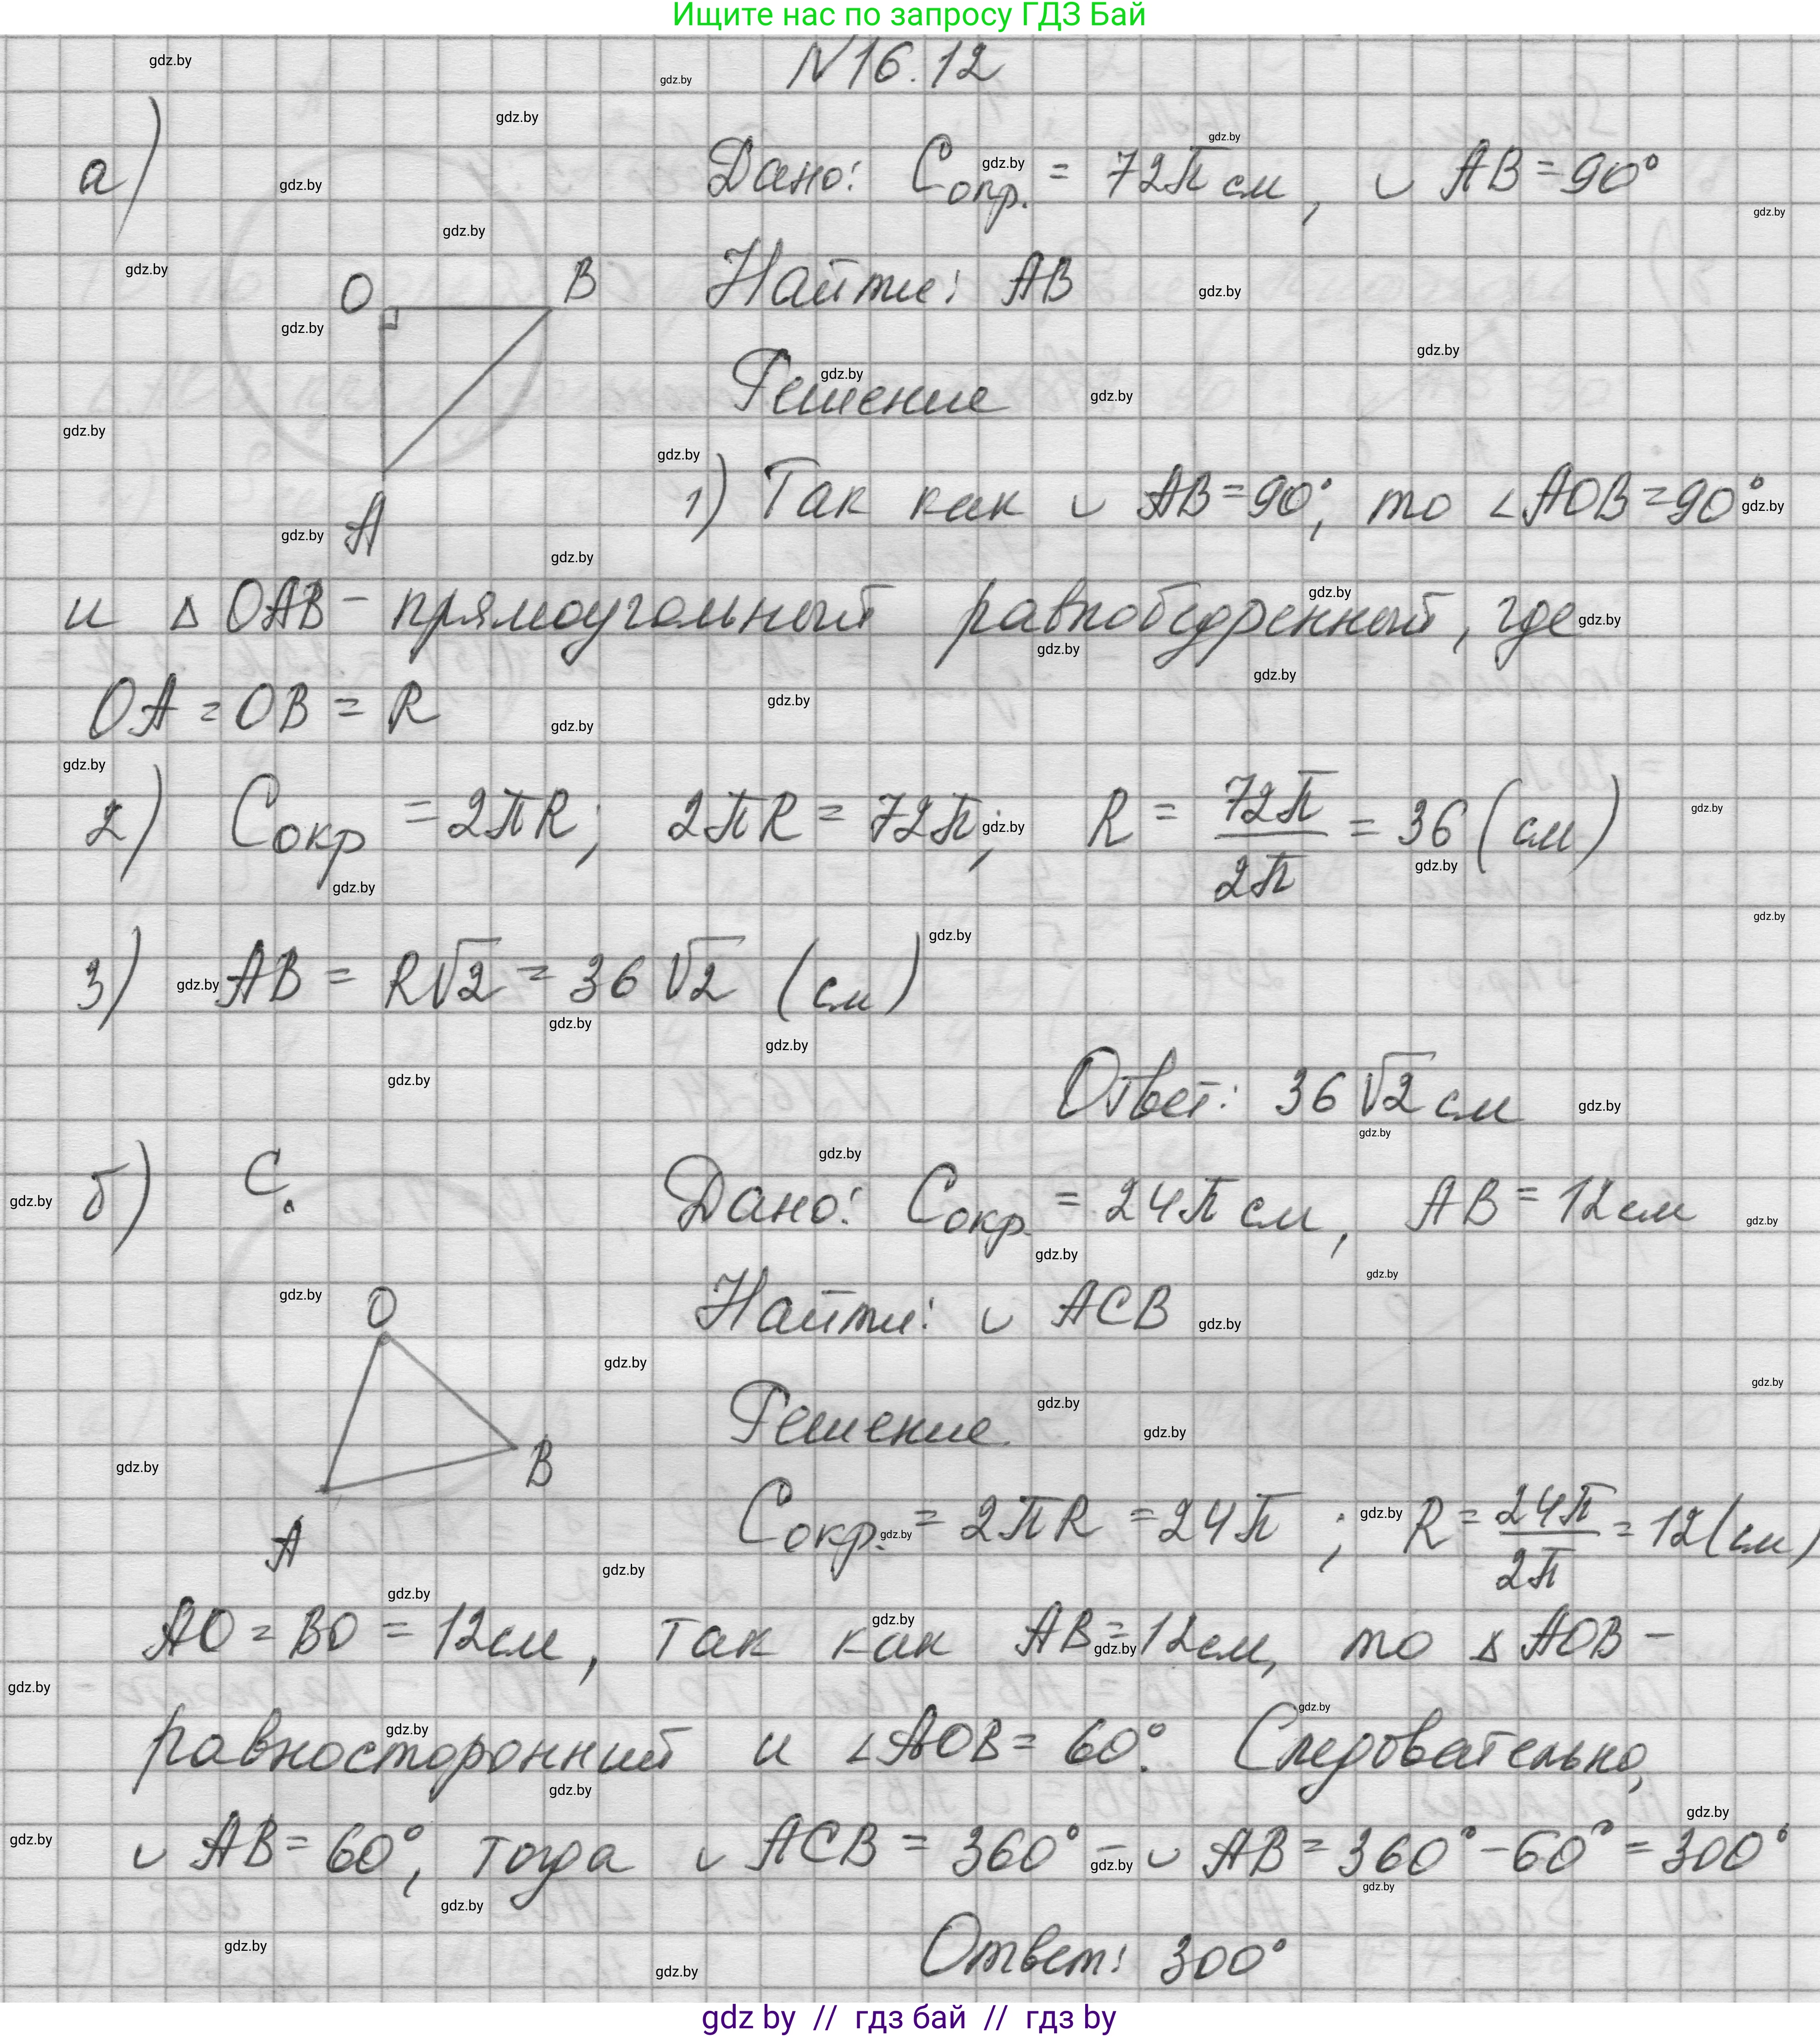 Ищите нас по запросу ГДЗ Бай
N 16.12
а)
Дано: Cопр. = 72π см, ◡ AB = 90°
O
B
A
Найти: AB
Решение
1) Так как ◡ AB = 90°, то ∠AOB = 90°
и △ OAB – прямоугольный равнобедренный, где
OA = OB = R
2) Cокр = 2πR; 2πR = 72π; R = 72π/2π = 36 (см)
3) AB = R√2 = 36√2 (см)
Ответ: 36√2 см
б)
C
O
B
A
Дано: Cокр = 24π см, AB = 12 см
Найти: ◡ ACB
Решение
Cокр. = 2πR = 24π ; R = 24π/2π = 12 (см)
AO = BO = 12 см, так как AB = 12 см, то △ AOB –
равносторонний и ∠AOB = 60°. Следовательно,
◡ AB = 60°, тогда ◡ ACB = 360° – ◡ AB = 360° – 60° = 300°
Ответ: 300°
gdz by // гдз бай // гдз by
gdz.by